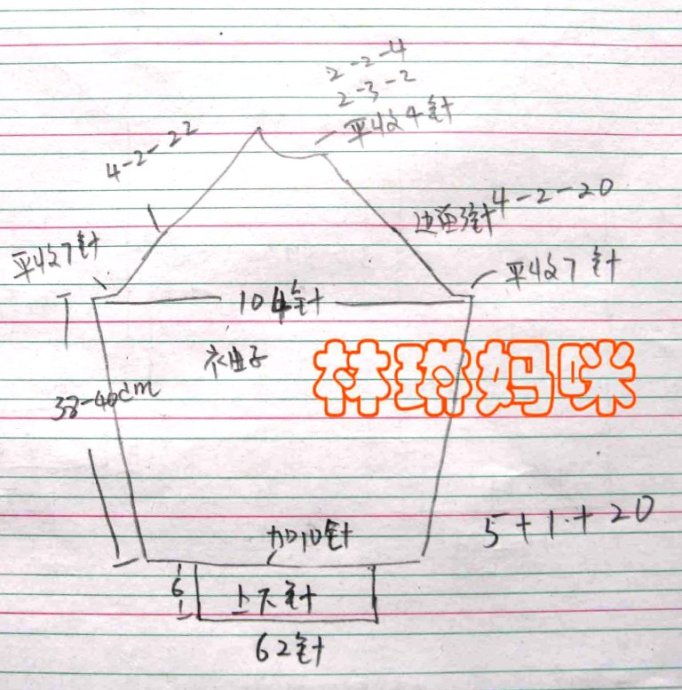 2-2-4
2-3-2
平收4针
4-2-22
4-2-20
边留3针
平收7针
平收7针
104针
衣袖子
林琳妈咪
38-40cm
加10针
5+1+20
6
上下针
62针